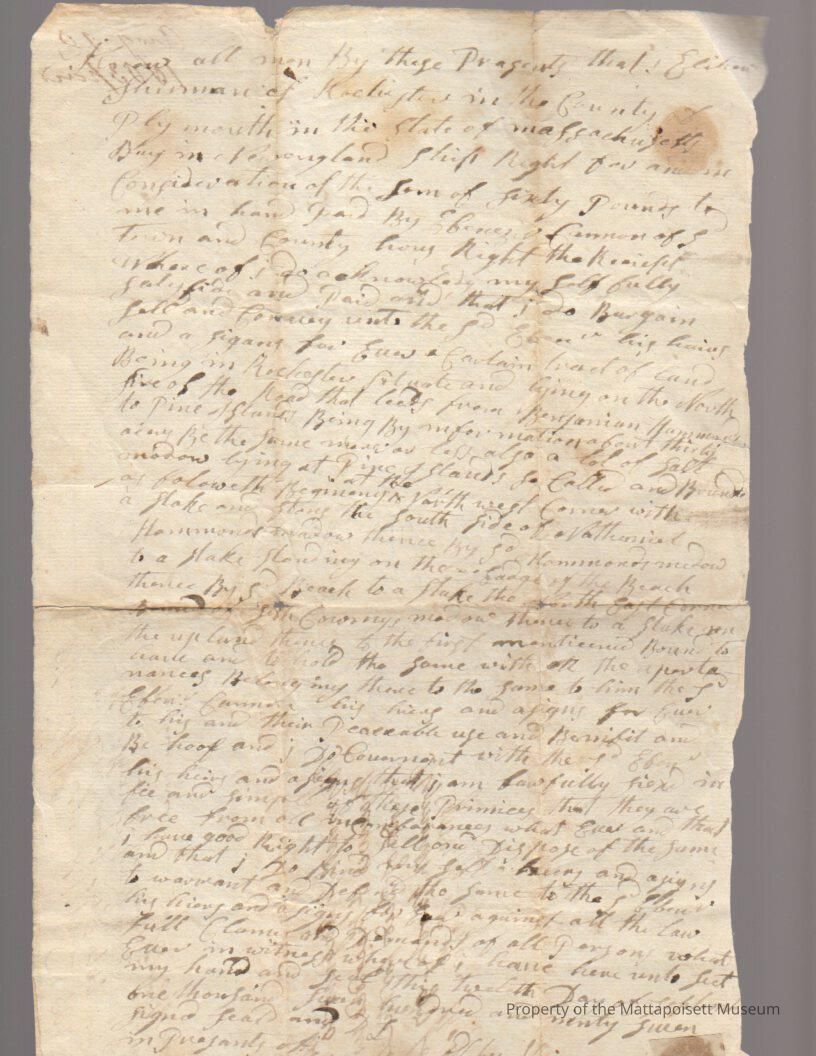 Know all men By these Presents that i Elihu
Shirman of Rochester in the County of
Plymouth in the State of massachusetts
Bay in Newengland Ship Right for and in
Consideration of the Som of Sixty Pounds to
me in hand Paid By Ebenezer Cannon of sd
Town and County hous Right the Reciept
where of i do acknowledg my Self fully
Satisfid and Paid and that i do Bargain
Sell and Convey unto the sd Ebenr his heirs
and a signs for Ever a Certain tract of Land
Being in Rochester Situate and lying on the North
Side of the Road that leeds from Benjaman Hammonds
to Pine Islands Being By information about thirty
acors Be the same more or less also a lot of Salt
medow lying at Pine Islands so Called and Bounded
as foloweth Begining at the North west Corner with
a Stake and Stons the South Side of Nathaniel
Hammonds medow thence By sd Hammonds medow
to a Stake Standing on the Eadge of the Beach
thence By sd Beach to a Stake the North East Corner
medow thence to a Stake on
the upland thence to the first mentioned Bound to
have and to hold the same with all the aperta
nances Belonging there to the same to him the sd
Ebenr Cannon his hiers and asigns for Ever
to his and their Peaceable use and Benifit and
Be hoof and i Do Covernant with the sd Ebenr
his heirs and asigns that i am lawfully siezd in
fee and Simple of these Primices that they are
free from all incombrances what Ever and that
i have good Right to Sell and Dispose of the same
and that i Do Bind my Self heirs and asigns
to warrant and Defend the same to the sd Ebenr
his hiers and asigns for Ever against all the Law
full Claims and Demands of all Persons what
Ever in witness where of i have here unto Set
my hand and seal this twelth Day of
one thousand Seven hundred and Seventy Seven
signd Seald and
in Presants of
Property of the Mattapoisett Museum